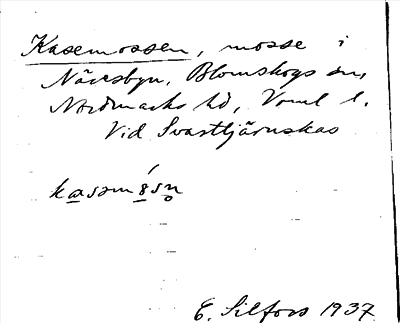 Kasemossen, mosse i
Näresbyn, Blomskogs sn,
Nordmarks hd, Värml l.
Vid Svarttjärnskas
kasəmɔ́sn̥
E. Silfors 1937